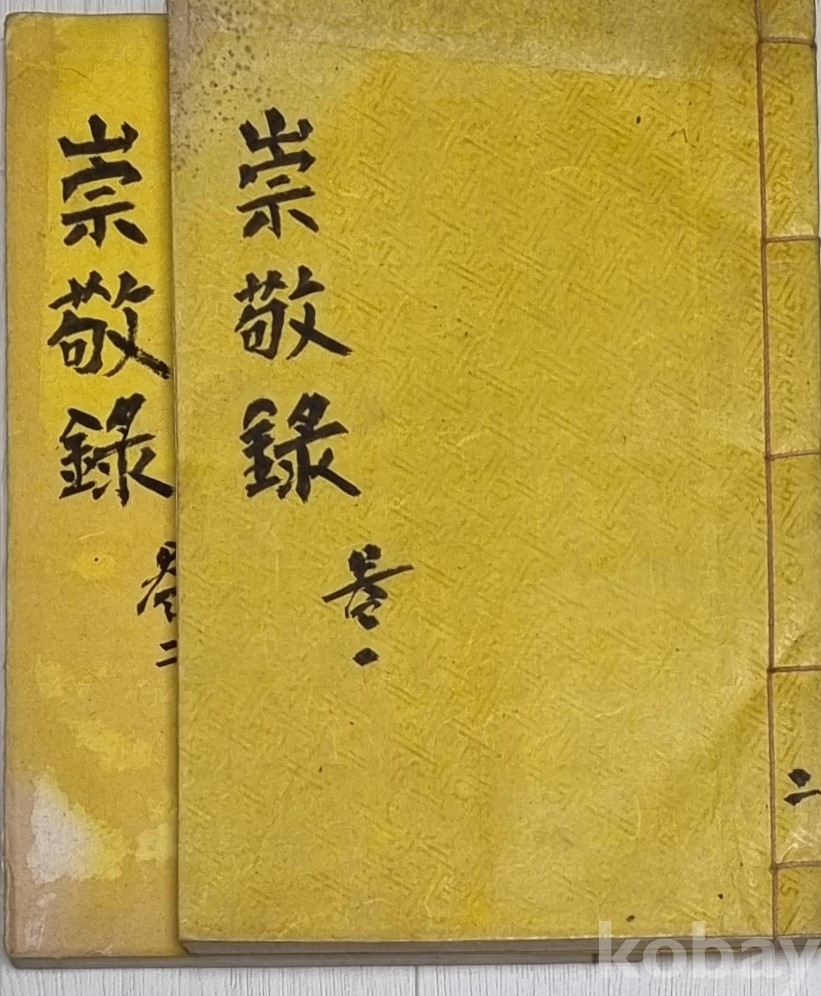 崇敬錄
卷一
二
崇敬錄
卷二
kobay